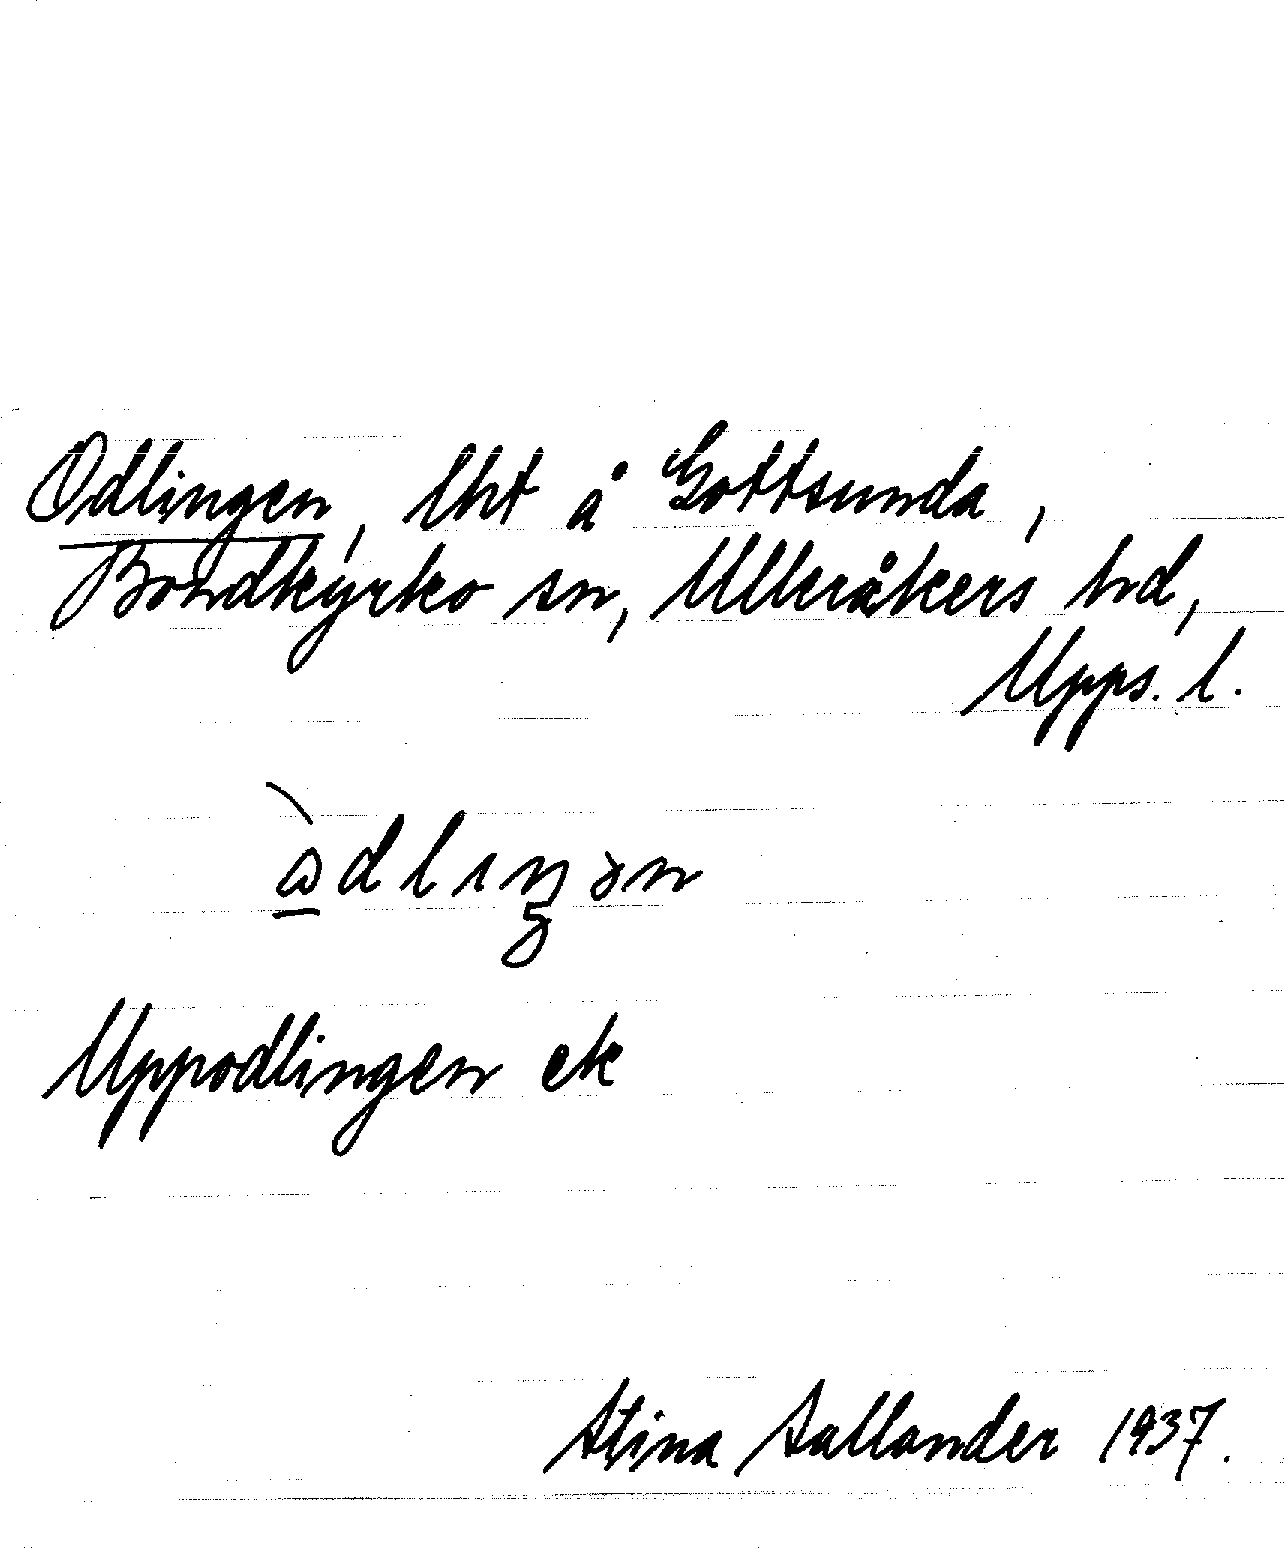 Odlingen, lht å Gottsunda,
Bondkyrko sn, Ulleråkers hd,
Upps. l.
Uppodlingen ek
Stina Sallander 1937.